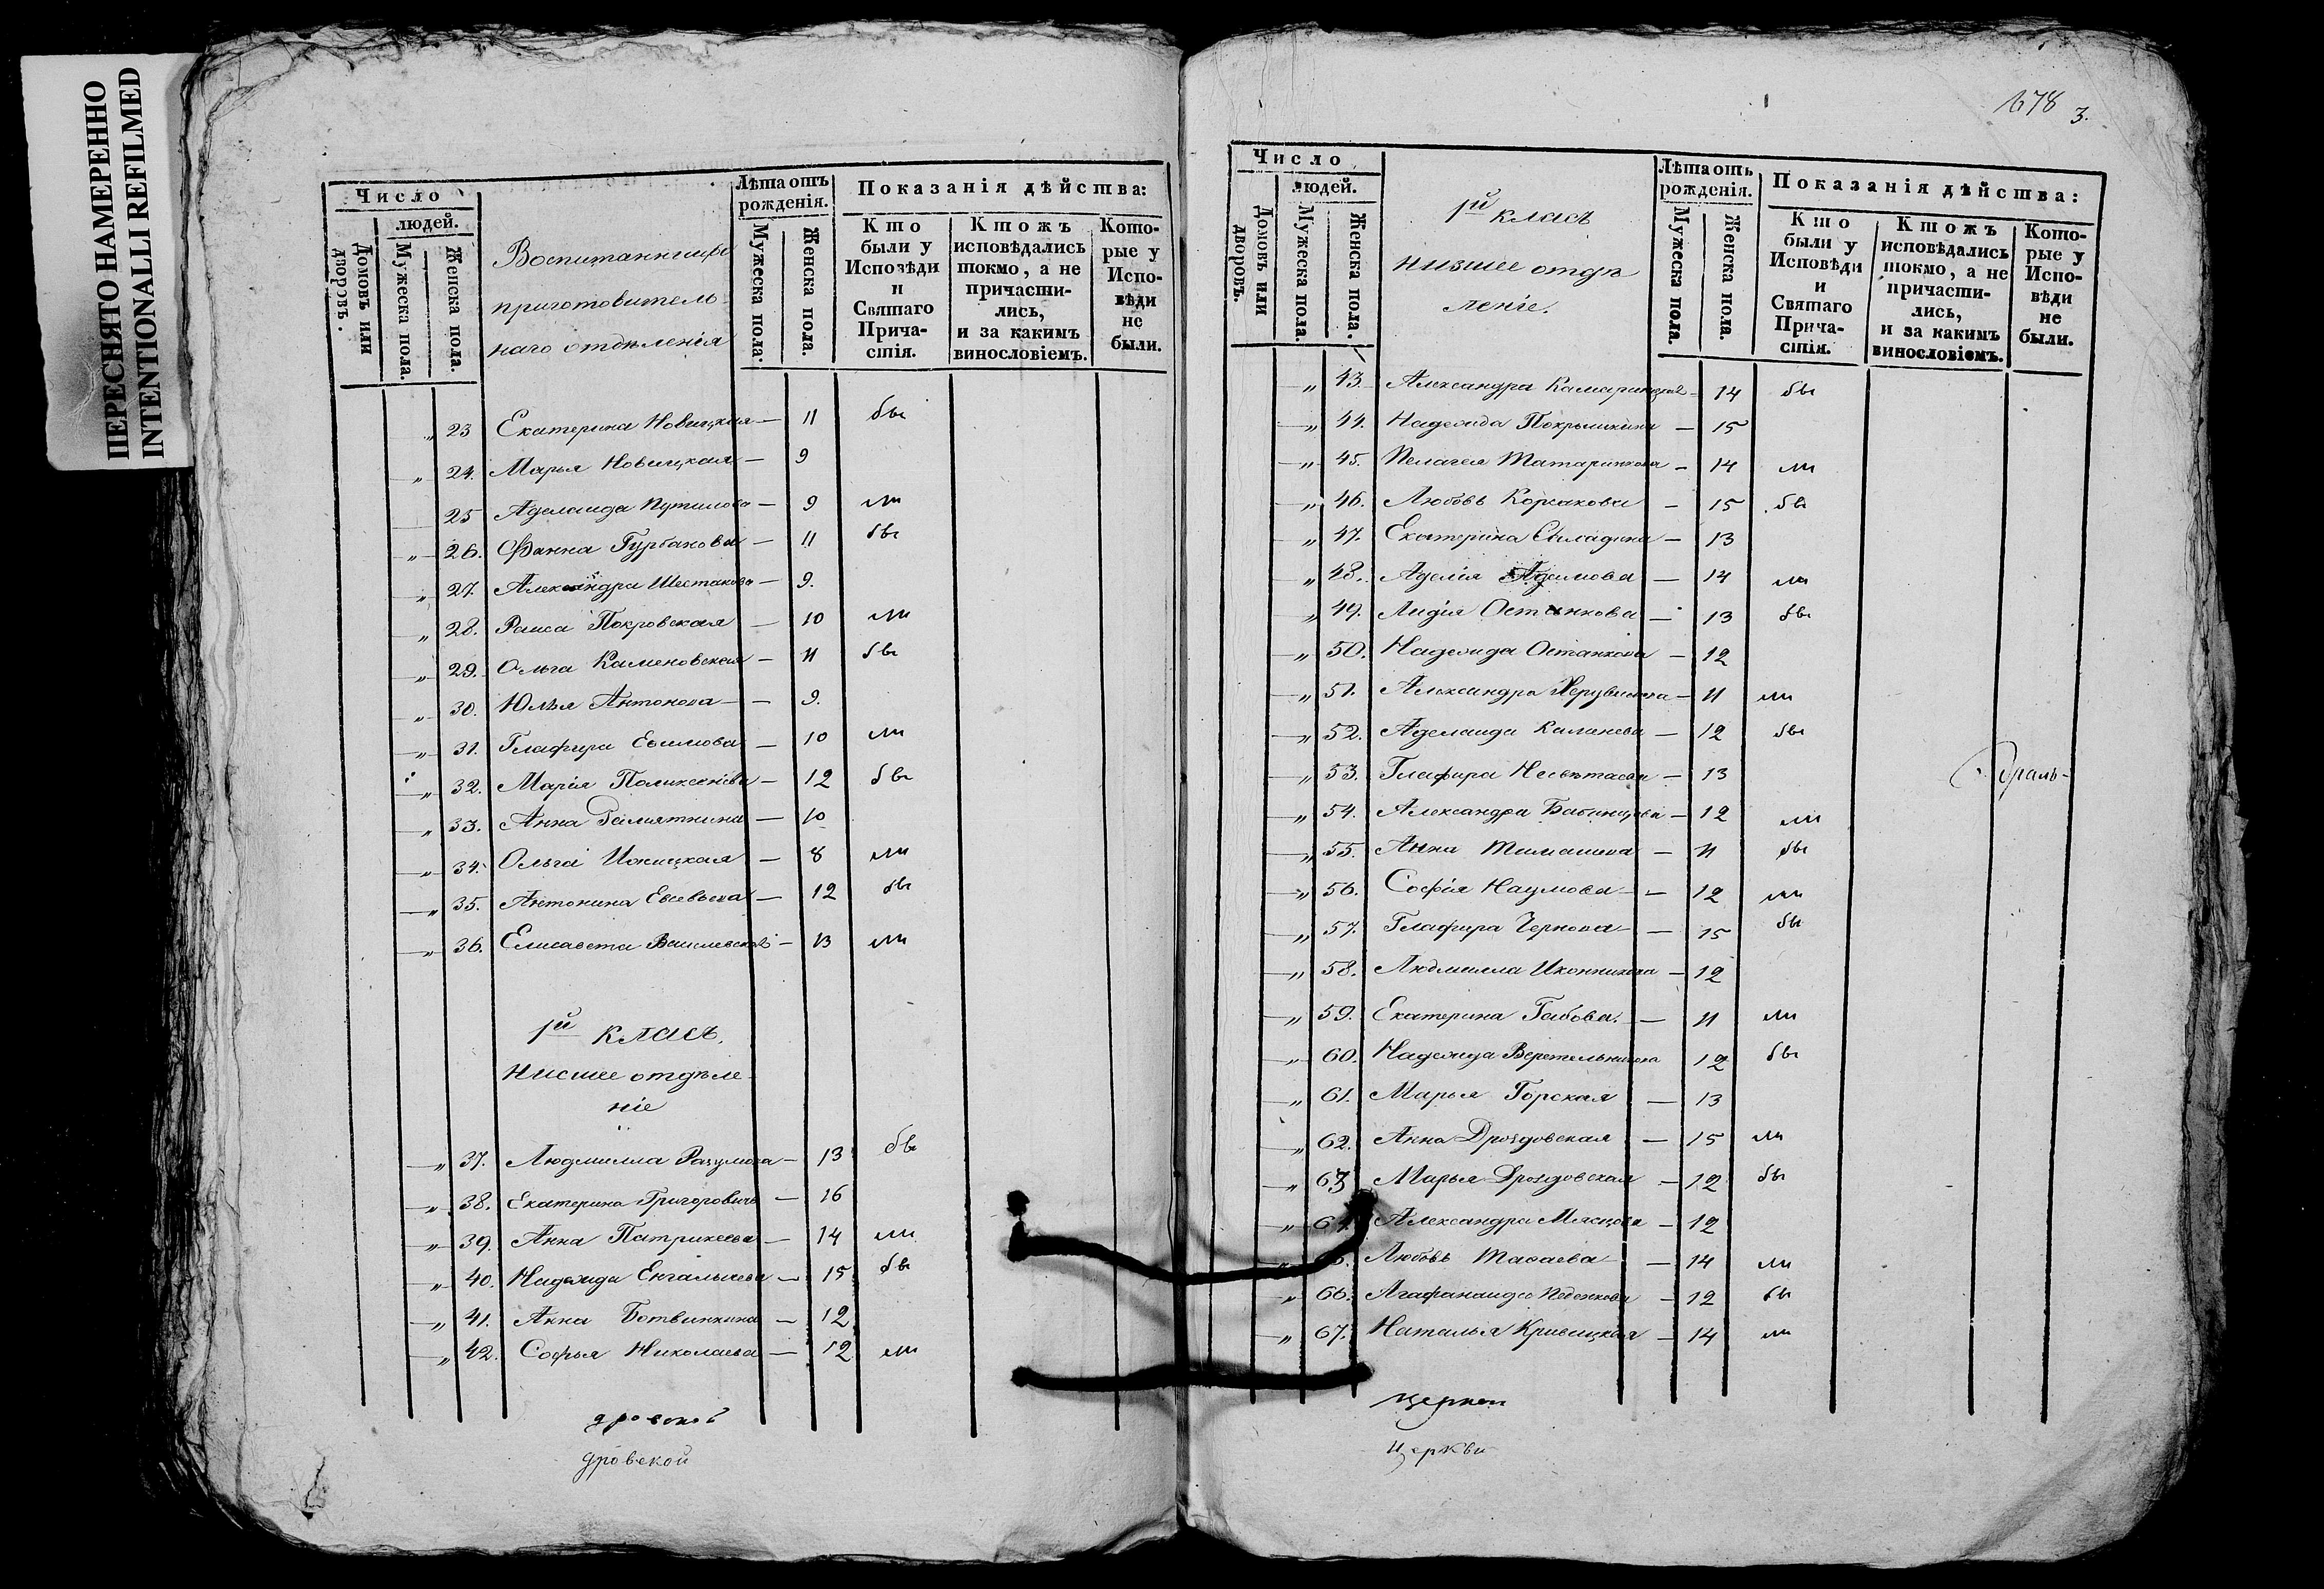 ПЕРЕСНЯТО НАМЕРЕННО
INTENTIONALLI REFILMED
Число
людей.
Домовъ или дворовъ.
Мужеска пола.
Женска пола.
Воспитанницы
приготовитель
наго отдѣленія
Лѣта отъ рожденія.
Мужеска пола.
Женска пола.
Показанія дѣйства:
Кто были у Исповѣди и Святаго Причастія.
Ктожъ исповѣдались токмо, а не причастились, и за какимъ винословіемъ.
Которые у Исповѣди не были.
„ 23 Екатерина Новицкая — 11 бы
„ 24. Марья Новицкая — 9
25 Аделаида Путилова — 9 ли
„ 26. Фанна Гурбанова — 11 бы
„ 27. Александра Шестакова — 9.
„ 28. Раиса Покровская — 10 ли
„ 29. Ольга Каменовская — 11 бы
„ 30. Юлья Антонова — 9.
„ 31. Глафира Ефимова — 10 ли
„ 32. Марія — 12 бы
„ 33. Анна — 10
„ 34. Ольга — 8 ли
„ 35. Антонина Евсевьева — 12 бы
„ 36. Елисавета Василевская — 13 ли
1й класъ.
Нисшее отдѣле
ніе
„ 37. Людмилла Разумова — 13 бы
„ 38. Екатерина Григоровичь — 16
„ 39. Анна Патрикеева — 14 ли
„ 40. Надежда Енгалычева — 15 бы
„ 41. Анна Ботвинкина — 12
„ 42. Софья Николаева — 12 ли
дровской
дровской
678 3.
Число
людей.
Домовъ или дворовъ.
Мужеска пола.
Женска пола.
1й класъ
низшее отдѣ
леніе.
Лѣта отъ рожденія.
Мужеска пола.
Женска пола.
Показанія дѣйства:
Кто были у Исповѣди и Святаго Причастія.
Ктожъ исповѣдались токмо, а не причастились, и за какимъ винословіемъ.
Которые у Исповѣди не были.
„ 43. Александра — 14 бы
„ 44. Надежда Покрышкина — 15
„ 45. Пелагея Татаринкова — 14 ли
„ 46. Любовь Корсакова — 15 бы
„ 47. Екатерина — 13
„ 48. Аделія Адамова — 14 ли
„ 49. Лидія Останкова — 13 бы
„ 50. Надежда Останкова — 12
„ 51. Александра Херувимова — 11 ли
„ 52. Аделаида Калинева — 12 бы
„ 53. Глафира Несвѣтаева — 13
„ 54. Александра Бабинцева — 12 ли
„ 55. Анна Тимашева — 11 бы
„ 56. Софія Наумова — 12 ли
„ 57. Глафира Чернова — 15 бы
„ 58. Людмилла Иконникова — 12
„ 59. Екатерина Габова. — 11 ли
„ 60. Надежда Веретельникова 12 бы
„ 61. Марья Горская — 13
„ 62. Анна Дроздовская — 15 ли
„ 63 Марья Дроздовская — 12 бы
„ 64. Александра Мясцова — 12
5. Любовь Тасаева — 14 ли
„ 66. — 12 бы
„ 67. Наталья Кривицкая — 14 ли
церкви
церкви